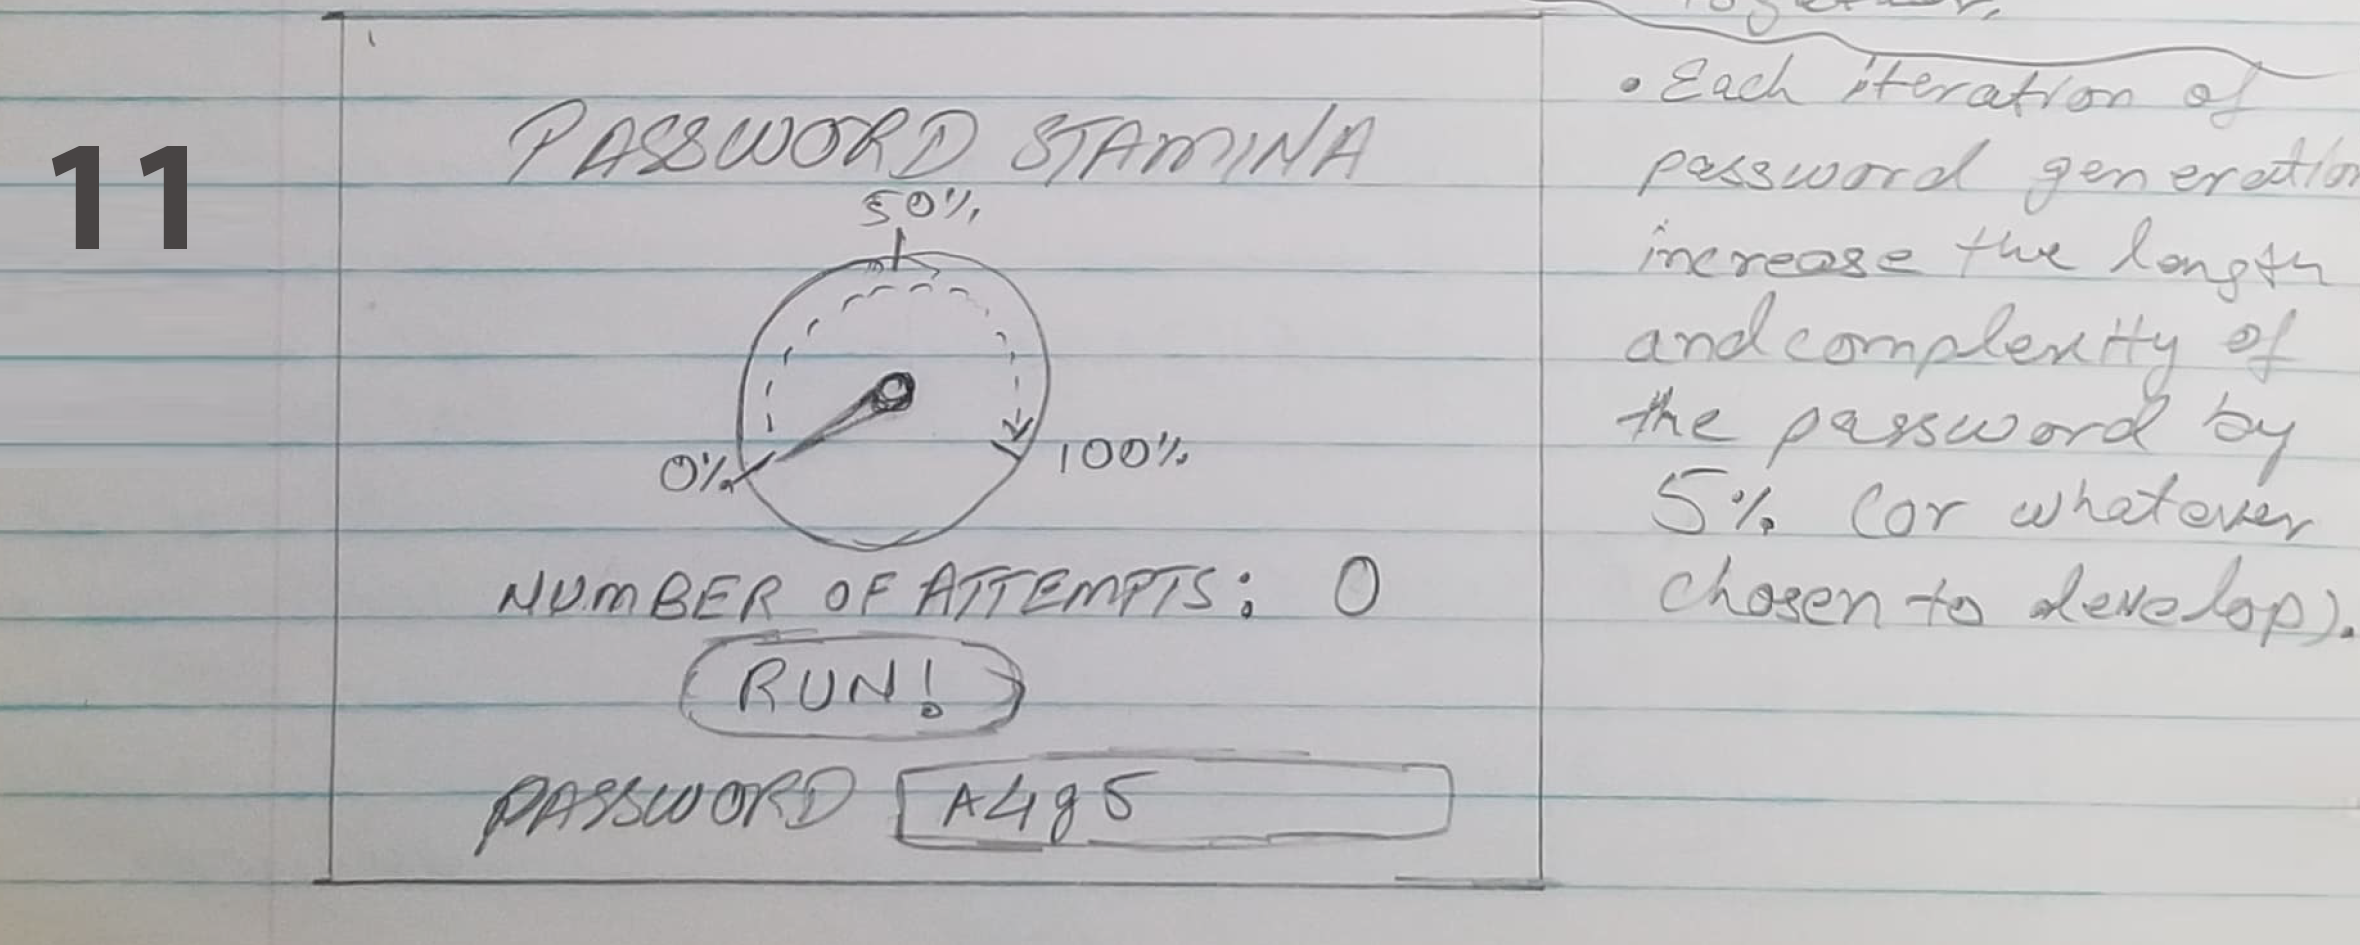 11
PASSWORD STAMINA
50%
0%
100%
NUMBER OF ATTEMPTS: 0
RUN!
PASSWORD A4g5
together.
• Each iteration of
password generation
increase the length
and complexity of
the password by
5% (or whatever
chosen to develop).